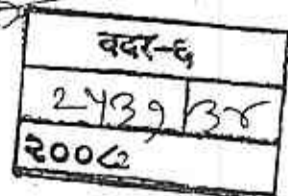 वदर-६
२५३१ ३४
२००८